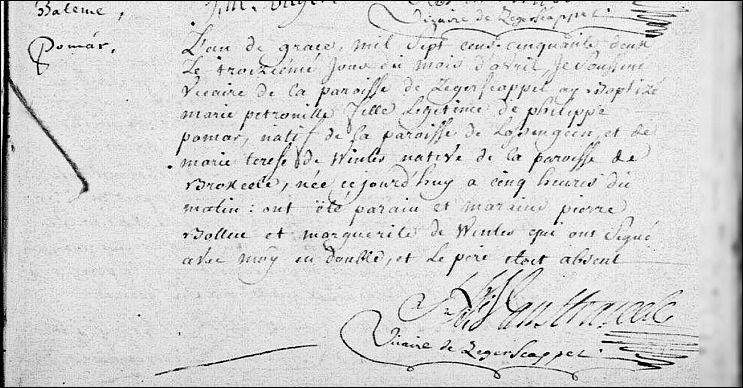 Bateme,
Vicaire de Zegerscappel.
Pomar,
L'an de grace, mil sept cens cinquante deux
Le troizieme Jour du mois d'avril, Je soussiné
vicaire de la paroisse de Zegerscappel ay Baptizé
marie petronille fille Legitime de philippe
pomar, natif de la paroisse de et de
marie terese de Winles native de la paroisse de
Brokcele, née cejourd'huy a cinq heures du
matin: ont été parain et maraine pierre
Bollen et marguerite de Winles qui ont signé
avec moy en double, et le pere etoit absent
Vicaire de Zegerscappel.